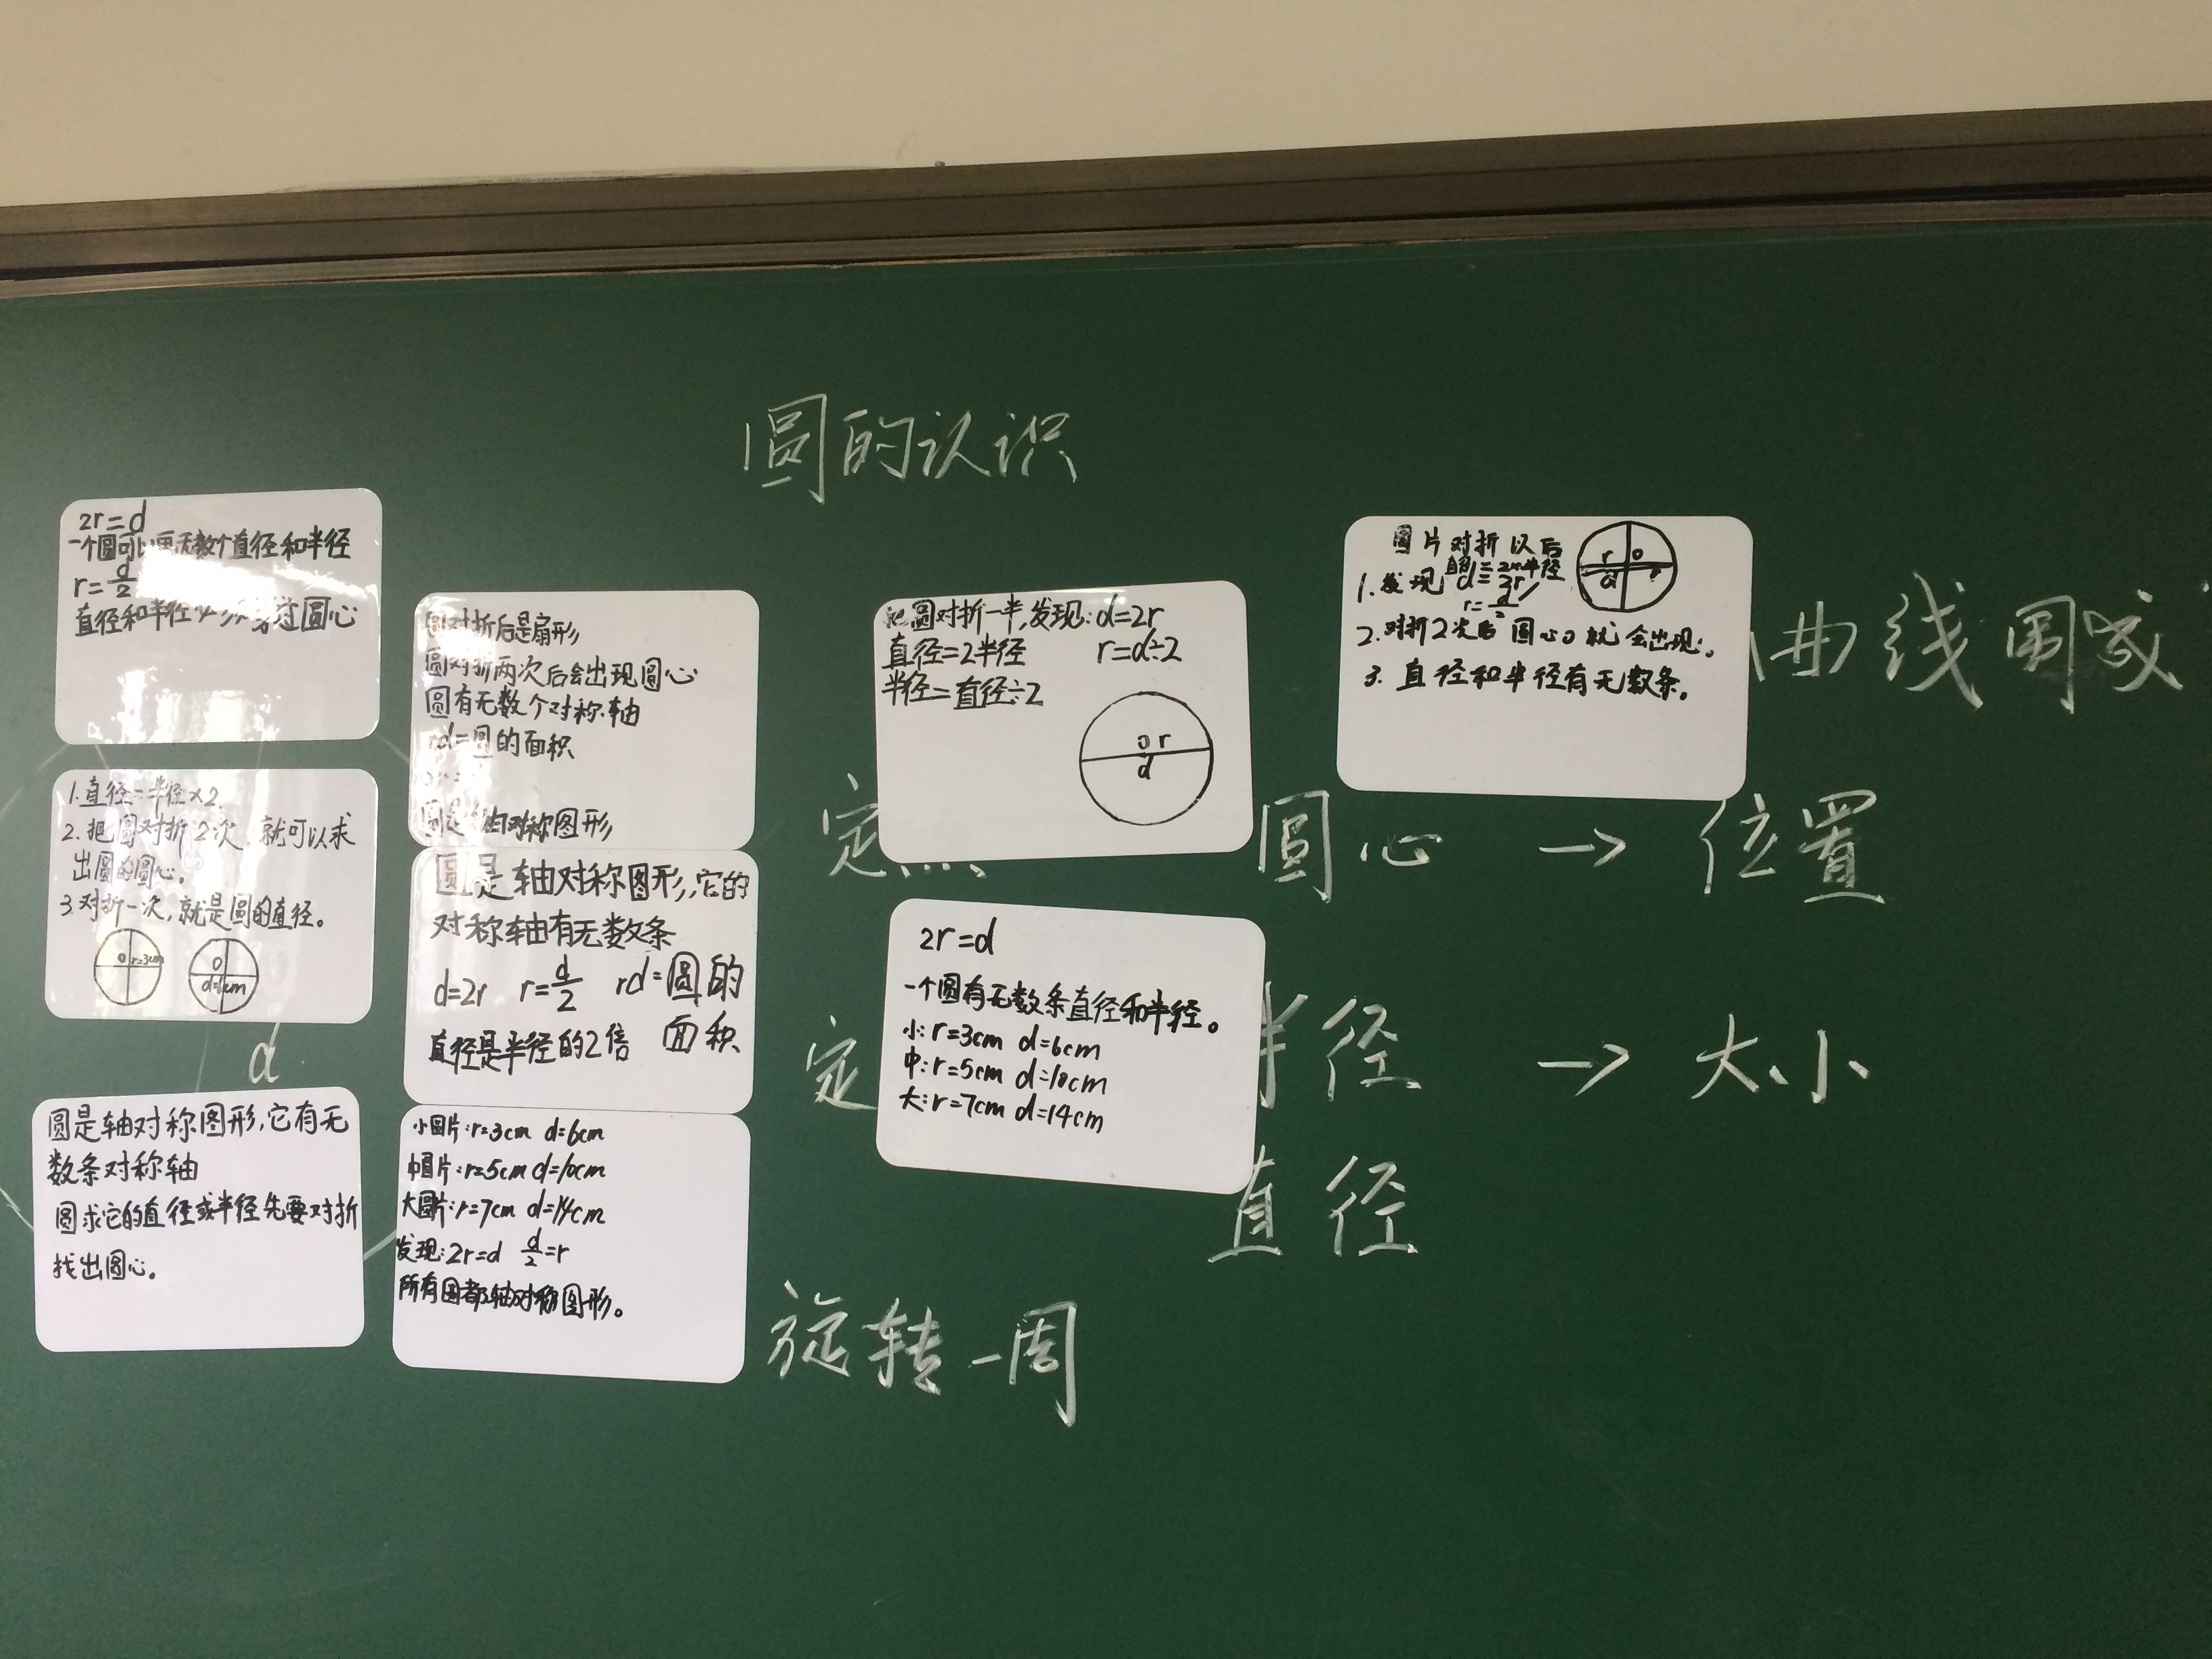 圆的认识
2r=d
一个圆可以画无数个直径和半径
r=d/2
直径和半径必须穿过圆心
1.直径=半径×2.
2.把圆对折2次,就可以求
出圆的圆心。
3.对折一次,就是圆的直径。
O r=3cm
O
d=6cm
d
圆是轴对称图形,它有无
数条对称轴
圆求它的直径或半径先要对折
找出圆心。
圆对折后是扇形
圆对折两次后会出现圆心
圆有无数个对称轴
rd=圆的面积
圆是轴对称图形
圆是轴对称图形,它的
对称轴有无数条
d=2r r=d/2 rd=圆的
直径是半径的2倍 面积
小圆片:r=3cm d=6cm
中圆片:r=5cm d=10cm
大圆片:r=7cm d=14cm
发现:2r=d d/2=r
所有圆都轴对称图形。
把圆对折一半,发现:d=2r
直径=2半径 r=d÷2
半径=直径÷2
O r
d
2r=d
一个圆有无数条直径和半径。
小:r=3cm d=6cm
中:r=5cm d=10cm
大:r=7cm d=14cm
圆片对折以后
1.发现 d=2r
r=d/2
r o
d r
2.对折2次后 圆心o就会出现。
3.直径和半径有无数条。
曲线围成
定点 圆心 → 位置
定 半径 → 大小
直径
旋转一周